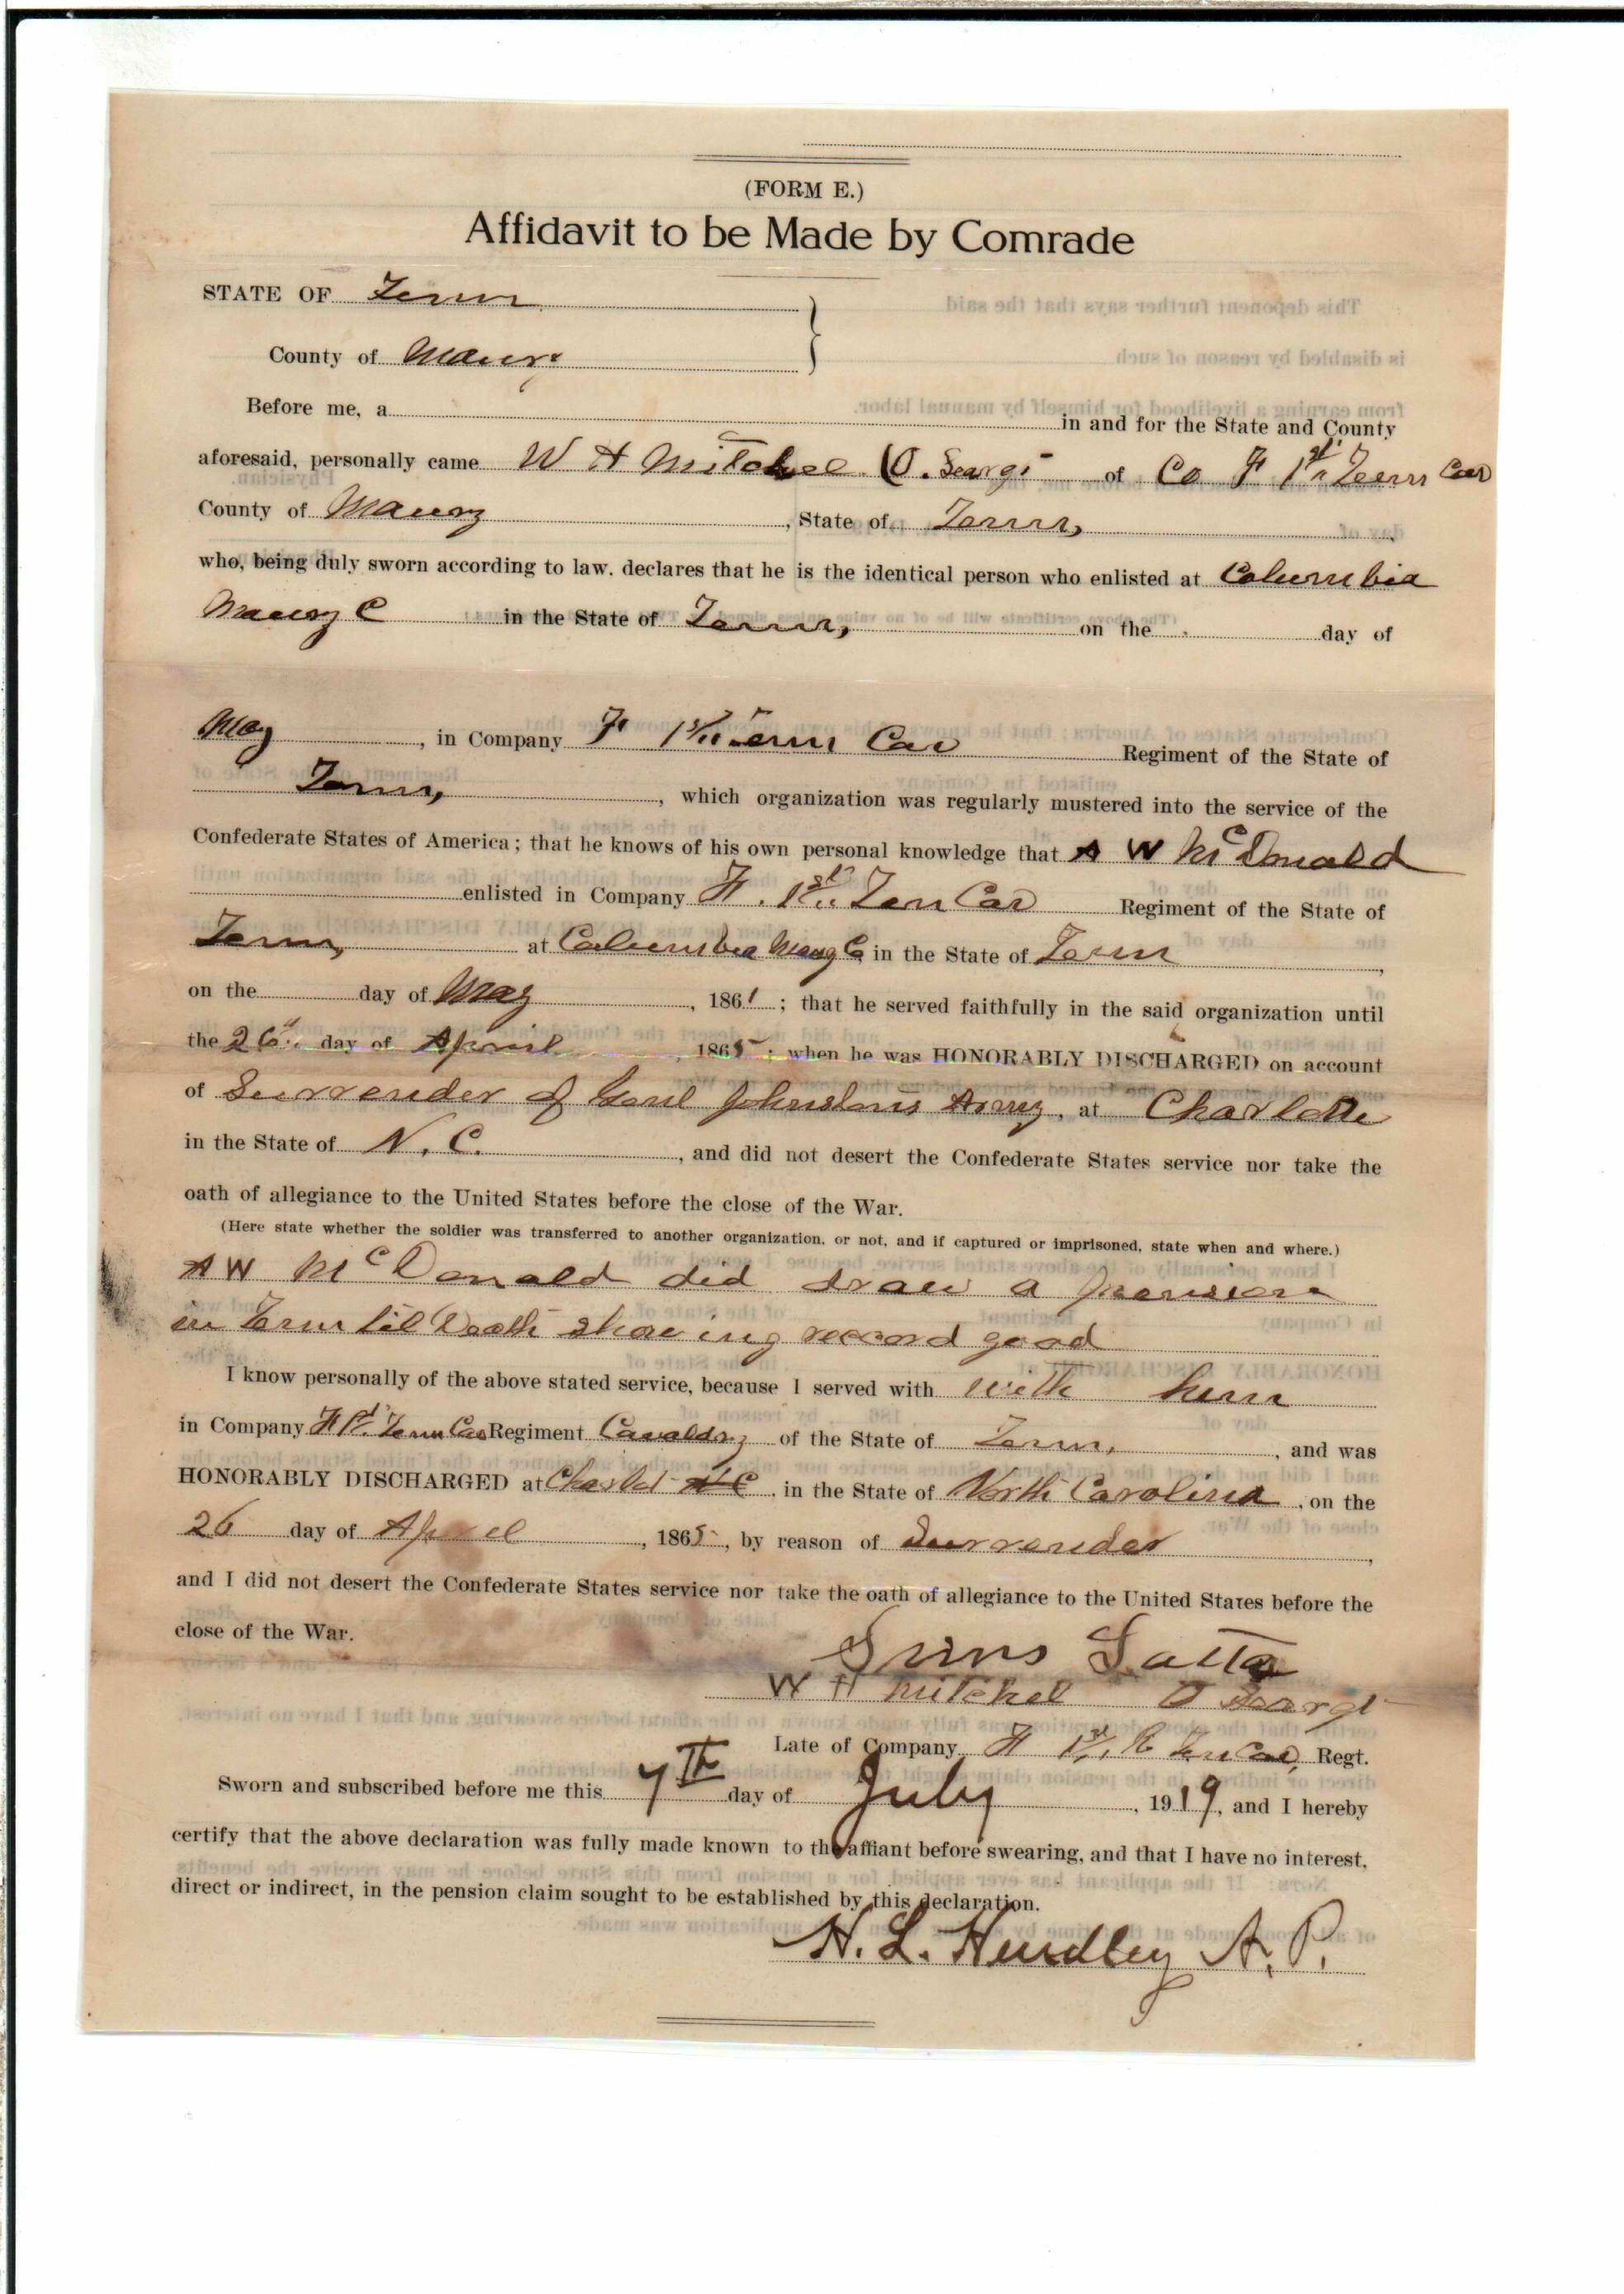 (FORM E.)
Affidavit to be Made by Comrade
STATE OF Tenn
County of Maury
Before me, a in and for the State and County
aforesaid, personally came W H Mitchel (O. Seargt of Co F 1st Tenn Cav
County of Maury, State of Tenn,
who, being duly sworn according to law, declares that he is the identical person who enlisted at Columbia
Maury C in the State of Tenn, on the day of
May, in Company F 1st Tenn Cav Regiment of the State of
Tenn, which organization was regularly mustered into the service of the
Confederate States of America; that he knows of his own personal knowledge that A W McDonald
enlisted in Company F. 1st Ten Cav Regiment of the State of
Tenn, at Columbia Maury C, in the State of Tenn,
on the day of May, 1861; that he served faithfully in the said organization until
the 26th day of April, 1865; when he was HONORABLY DISCHARGED on account
of Surrender of Genl Johnstons Army, at Charlotte
in the State of N. C., and did not desert the Confederate States service nor take the
oath of allegiance to the United States before the close of the War.
(Here state whether the soldier was transferred to another organization, or not, and if captured or imprisoned, state when and where.)
A W McDonald did draw a pension
in Tenn til Death showing record good
I know personally of the above stated service, because I served with with him
in Company F 1st Tenn Cav Regiment Cavaldry of the State of Tenn, and was
HONORABLY DISCHARGED at N C, in the State of North Carolina, on the
26 day of April, 1865, by reason of Surrender,
and I did not desert the Confederate States service nor take the oath of allegiance to the United States before the
close of the War.
Sims Latta
W H Mitchel O Seargt
Late of Company F 1st Ten Cav, Regt.
Sworn and subscribed before me this 7th day of July, 1919, and I hereby
certify that the above declaration was fully made known to the affiant before swearing, and that I have no interest,
direct or indirect, in the pension claim sought to be established by this declaration.
H. L. Hendley N. P.